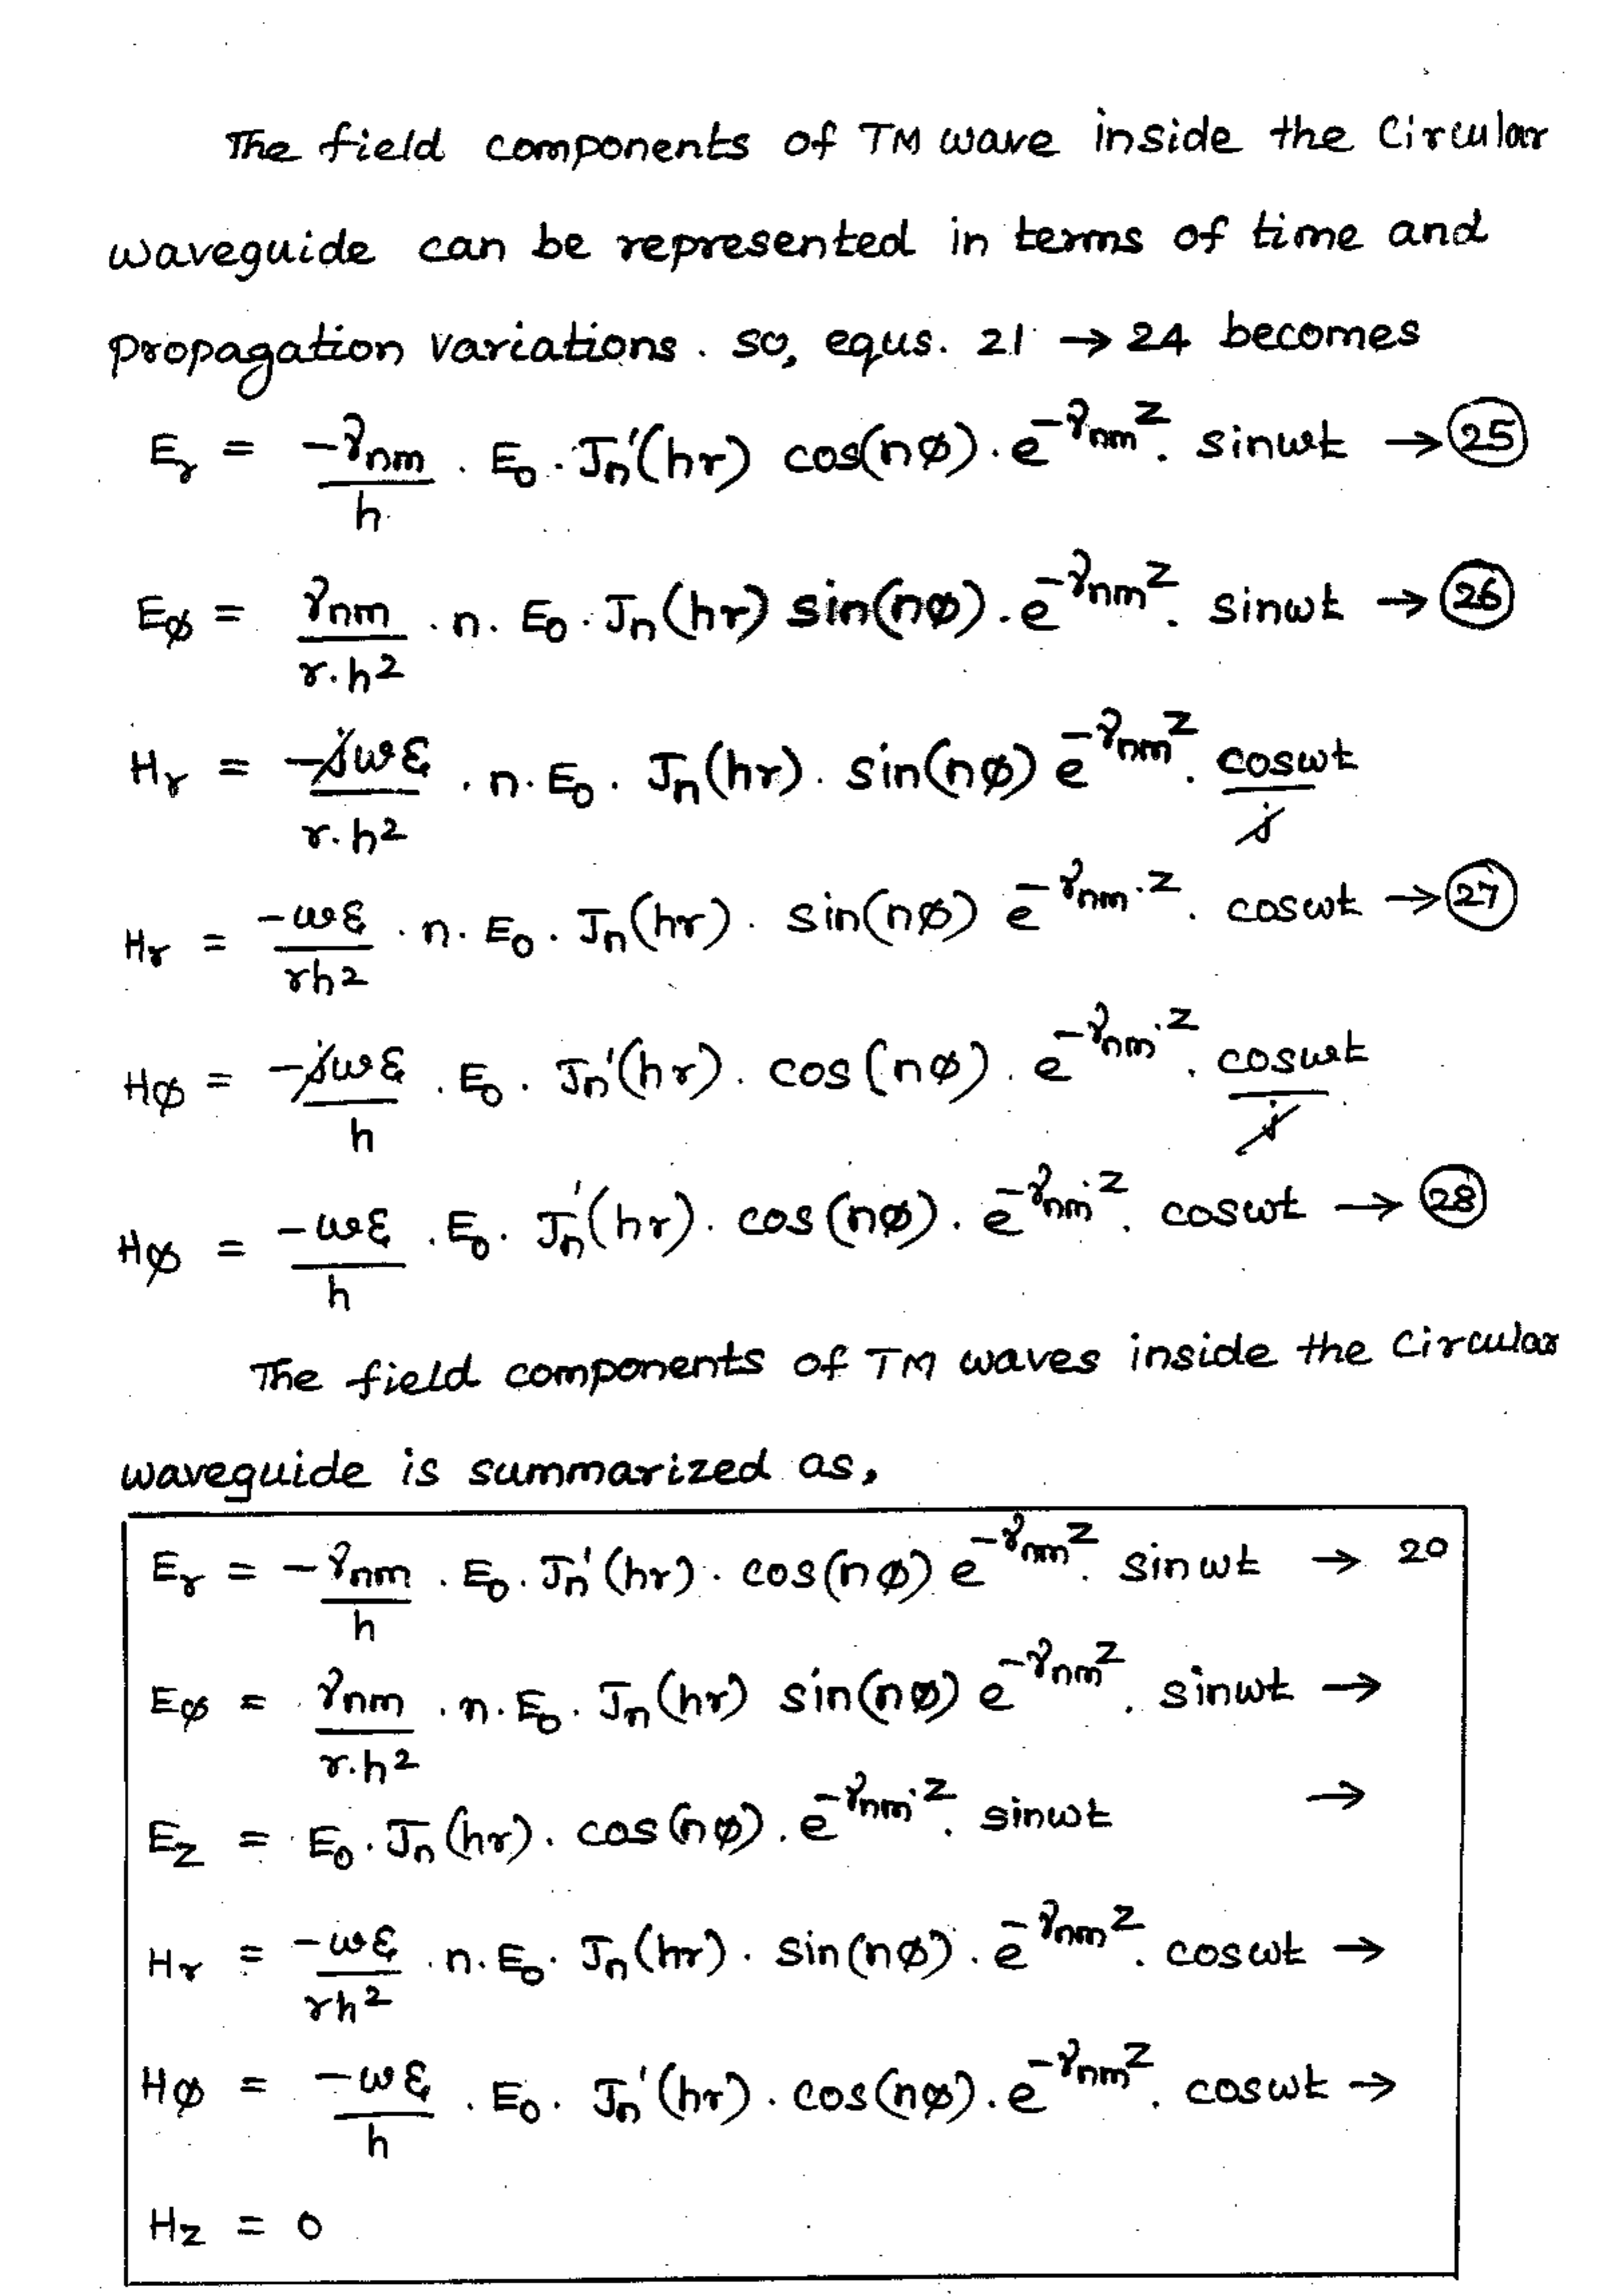 The field components of TM wave inside the Circular
waveguide can be represented in terms of time and
propagation variations. so, equs. 21 → 24 becomes
E_r = -γ_nm/h . E_0 . J_n'(hr) cos(nø) . e^{-γ_nm z} . sinωt → (25)
E_ø = γ_nm/(r.h²) . n . E_0 . J_n(hr) sin(nø) . e^{-γ_nm z} . sinωt → (26)
H_r = -jωε/(r.h²) . n . E_0 . J_n(hr) . sin(nø) e^{-γ_nm z} . cosωt/j
H_r = -ωε/(rh²) . n . E_0 . J_n(hr) . sin(nø) e^{-γ_nm . z} . cosωt → (27)
H_ø = -jωε/h . E_0 . J_n'(hr) . cos(nø) . e^{-γ_nm . z} . cosωt/j
H_ø = -ωε/h . E_0 . J_n'(hr) . cos(nø) . e^{-γ_nm . z} . cosωt → (28)
The field components of TM waves inside the Circular
waveguide is summarized as,
E_r = -γ_nm/h . E_0 . J_n'(hr) . cos(nø) e^{-γ_nm z} . sinωt → 20
E_ø = γ_nm/(r.h²) . n . E_0 . J_n(hr) sin(nø) e^{-γ_nm z} . sinωt →
E_z = E_0 . J_n(hr) . cos(nø) . e^{-γ_nm . z} . sinωt →
H_r = -ωε/(rh²) . n . E_0 . J_n(hr) . sin(nø) . e^{-γ_nm z} . cosωt →
H_ø = -ωε/h . E_0 . J_n'(hr) . cos(nø) . e^{-γ_nm z} . cosωt →
H_z = 0